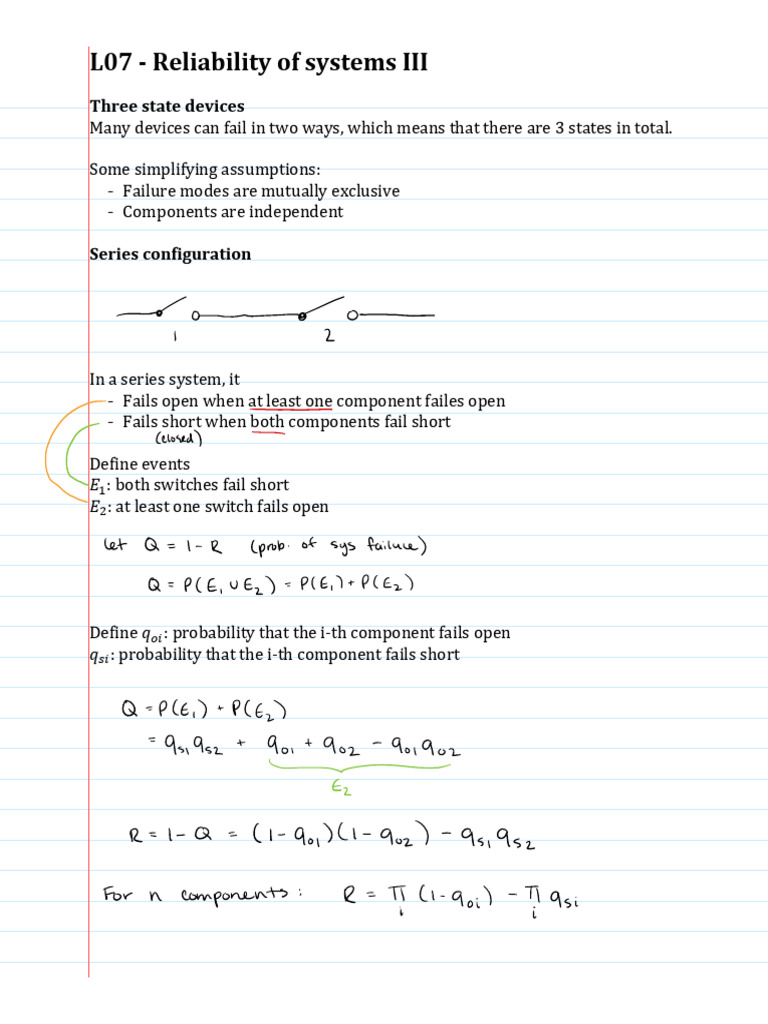 L07 - Reliability of systems III
Three state devices
Many devices can fail in two ways, which means that there are 3 states in total.
Some simplifying assumptions:
- Failure modes are mutually exclusive
- Components are independent
Series configuration
1 2
In a series system, it
- Fails open when at least one component failes open
- Fails short when both components fail short
(closed)
Define events
E₁: both switches fail short
E₂: at least one switch fails open
let Q = 1 - R (prob. of sys failure)
Q = P(E₁ ∪ E₂) = P(E₁) + P(E₂)
Define q_oi: probability that the i-th component fails open
q_si: probability that the i-th component fails short
Q = P(E₁) + P(E₂)
= q_s1 q_s2 + q_o1 + q_o2 - q_o1 q_o2
E₂
R = 1 - Q = (1 - q_o1)(1 - q_o2) - q_s1 q_s2
For n components: R = π_i (1 - q_oi) - π_i q_si